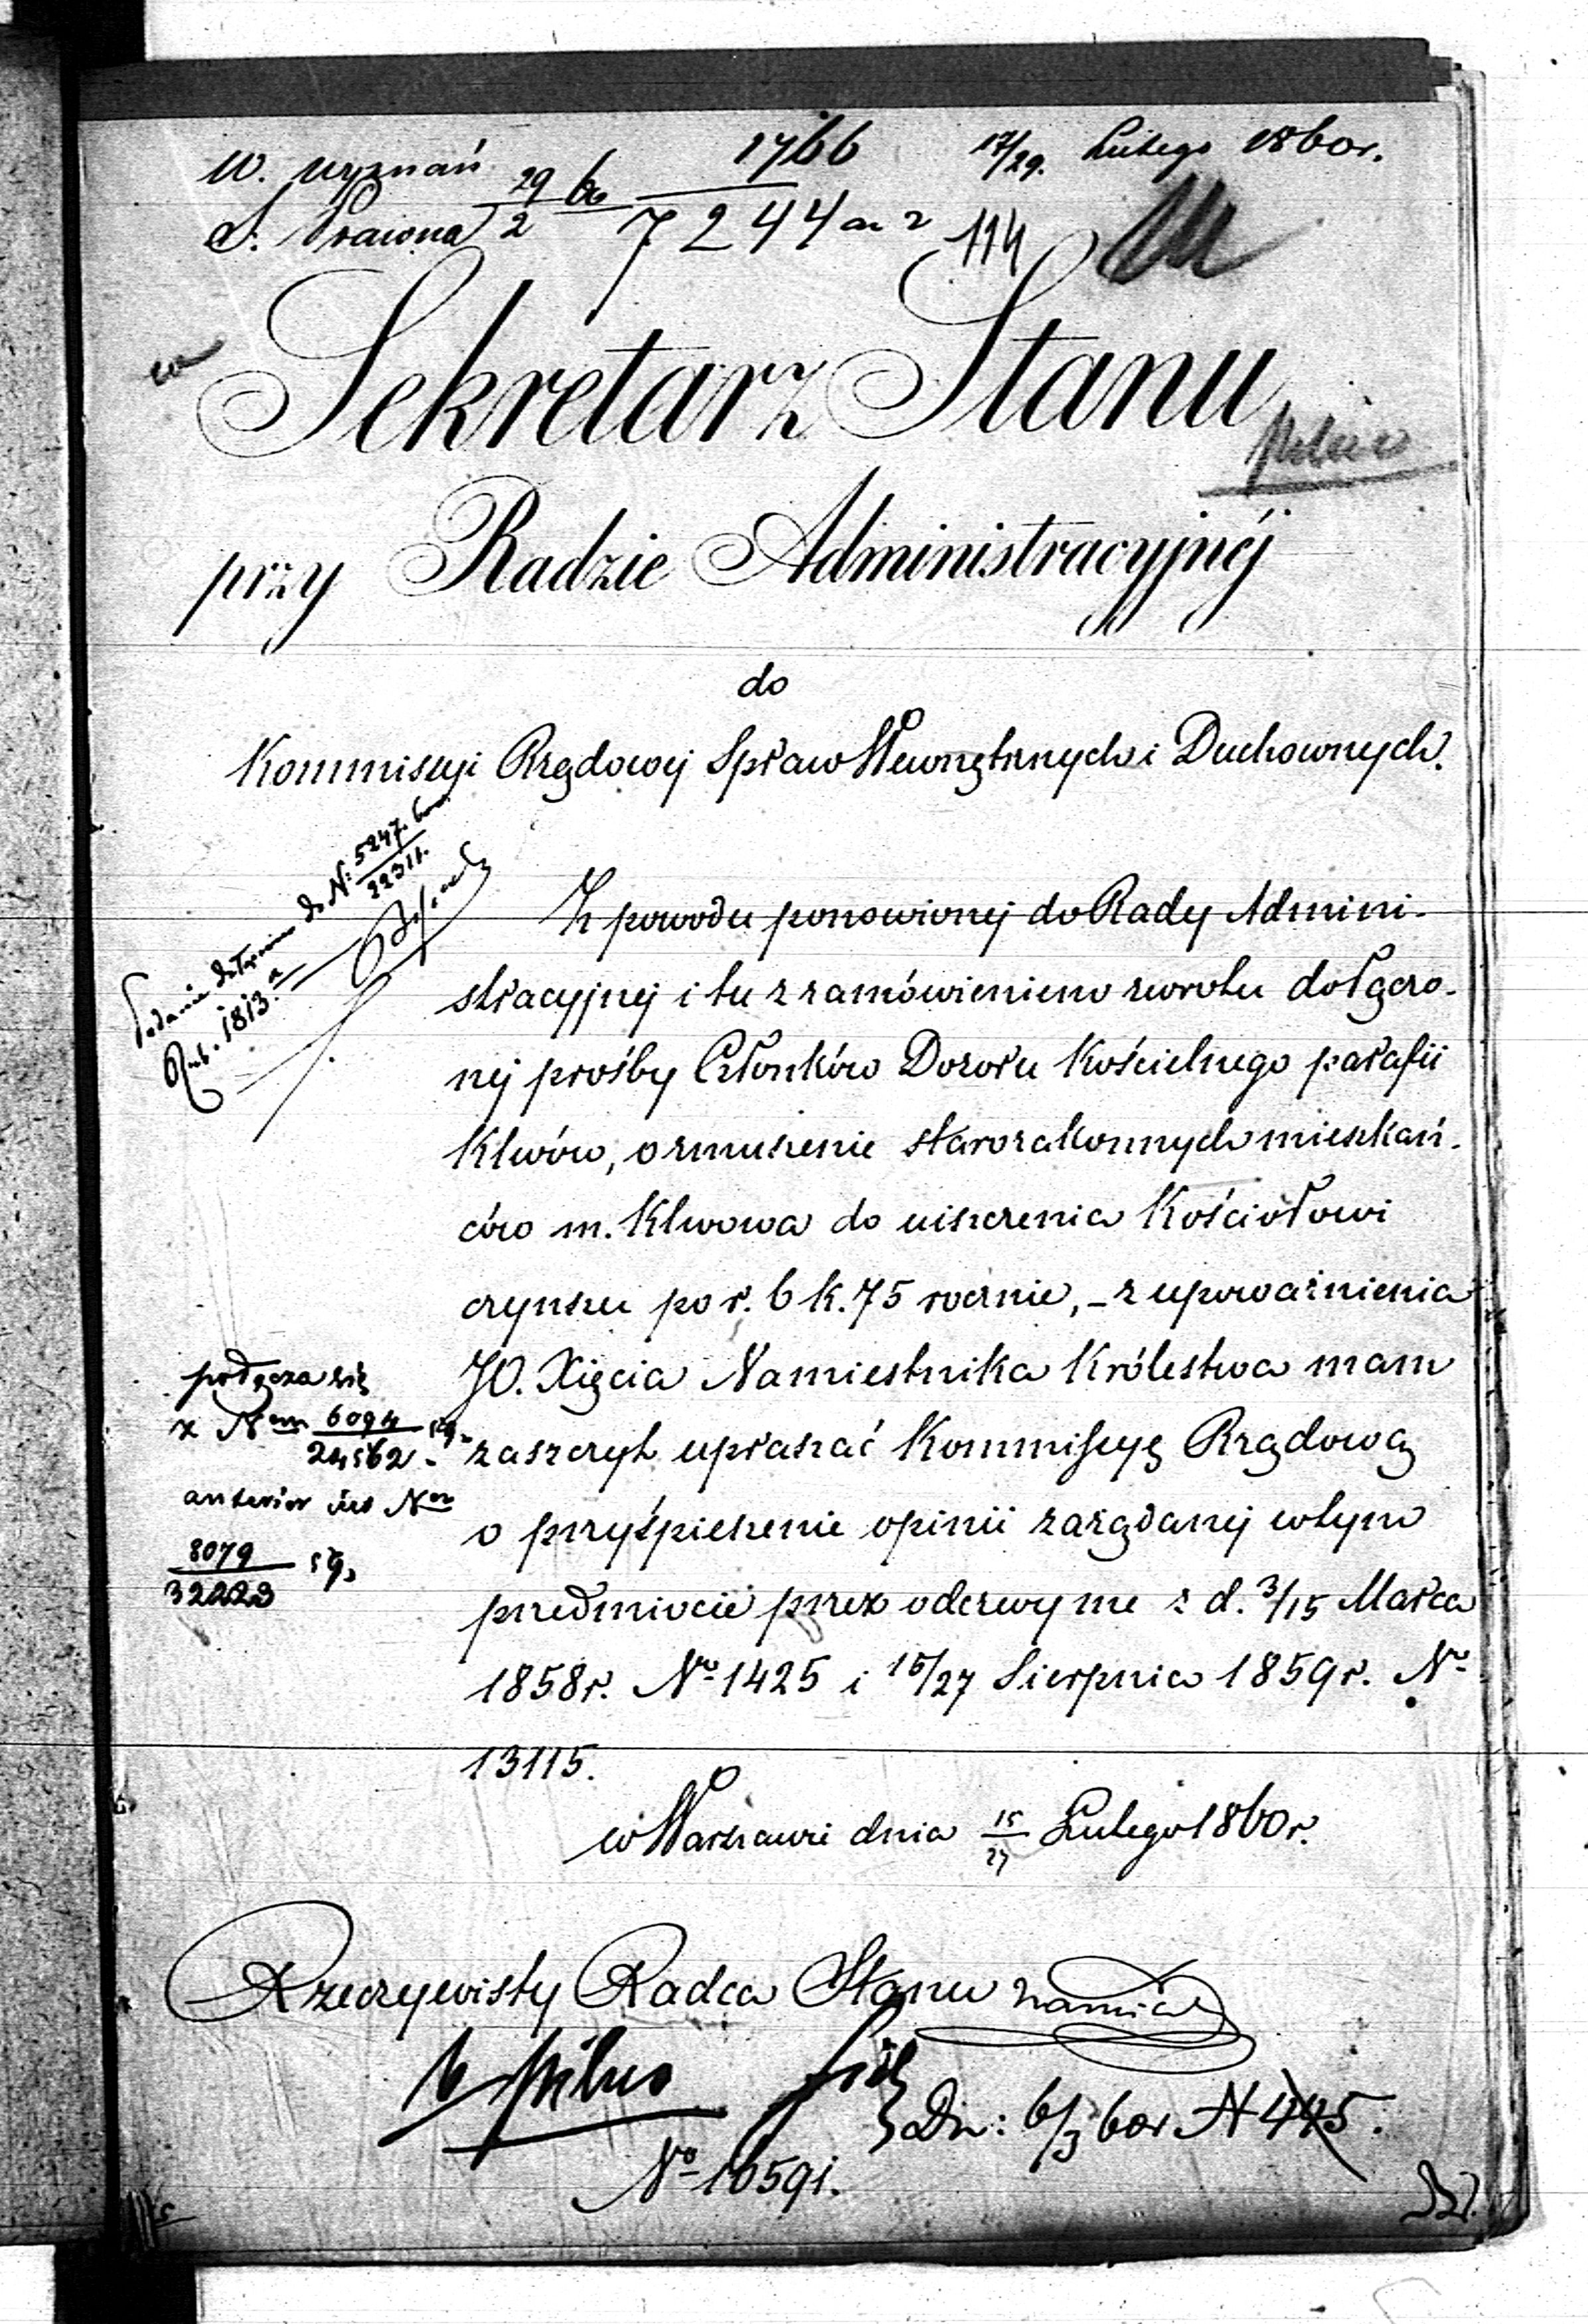 W. wyznań 1766 17/29. Lutego 1860r.
S. Prawna 29/2 60 7244 114
Sekretarz Stanu
pilne
przy Radzie Administracyjnéj
do
Kommissyi Rządowej Spraw Wewnętrznych i Duchownych.
Podanie do N: 5247. 60
22311.
Rub. 1813.
Z powodu ponowionej do Rady Admini-
stracyjnej i tu z zamówieniem zwrotu dołączo-
nej prośby Członków Dozoru Kościelnego parafii
Klwów, o zmuszenie starozakonnych mieszkań-
ców m. Klwowa do uiszczenia Kościołowi
czynszu po r. 6 k. 75 rocznie, – z upoważnienia
JO. Xięcia Namiestnika Królestwa mam
zaszczyt upraszać Kommissyę Rządową
o przyśpieszenie opinii zażądanej w tym
przedmiocie przez odezwy me z d. 3/15 Marca
1858r. No 1425 i 15/27 Sierpnia 1859r. No
13115.
podącza się
z Nem 6094
24562 59.
anterior No
8079
32223 59.
w Warszawie dnia 15/27 Lutego 1860r.
Rzeczywisty Radca Stanu
Dn: 6/3 60r N 445.
No 10591.